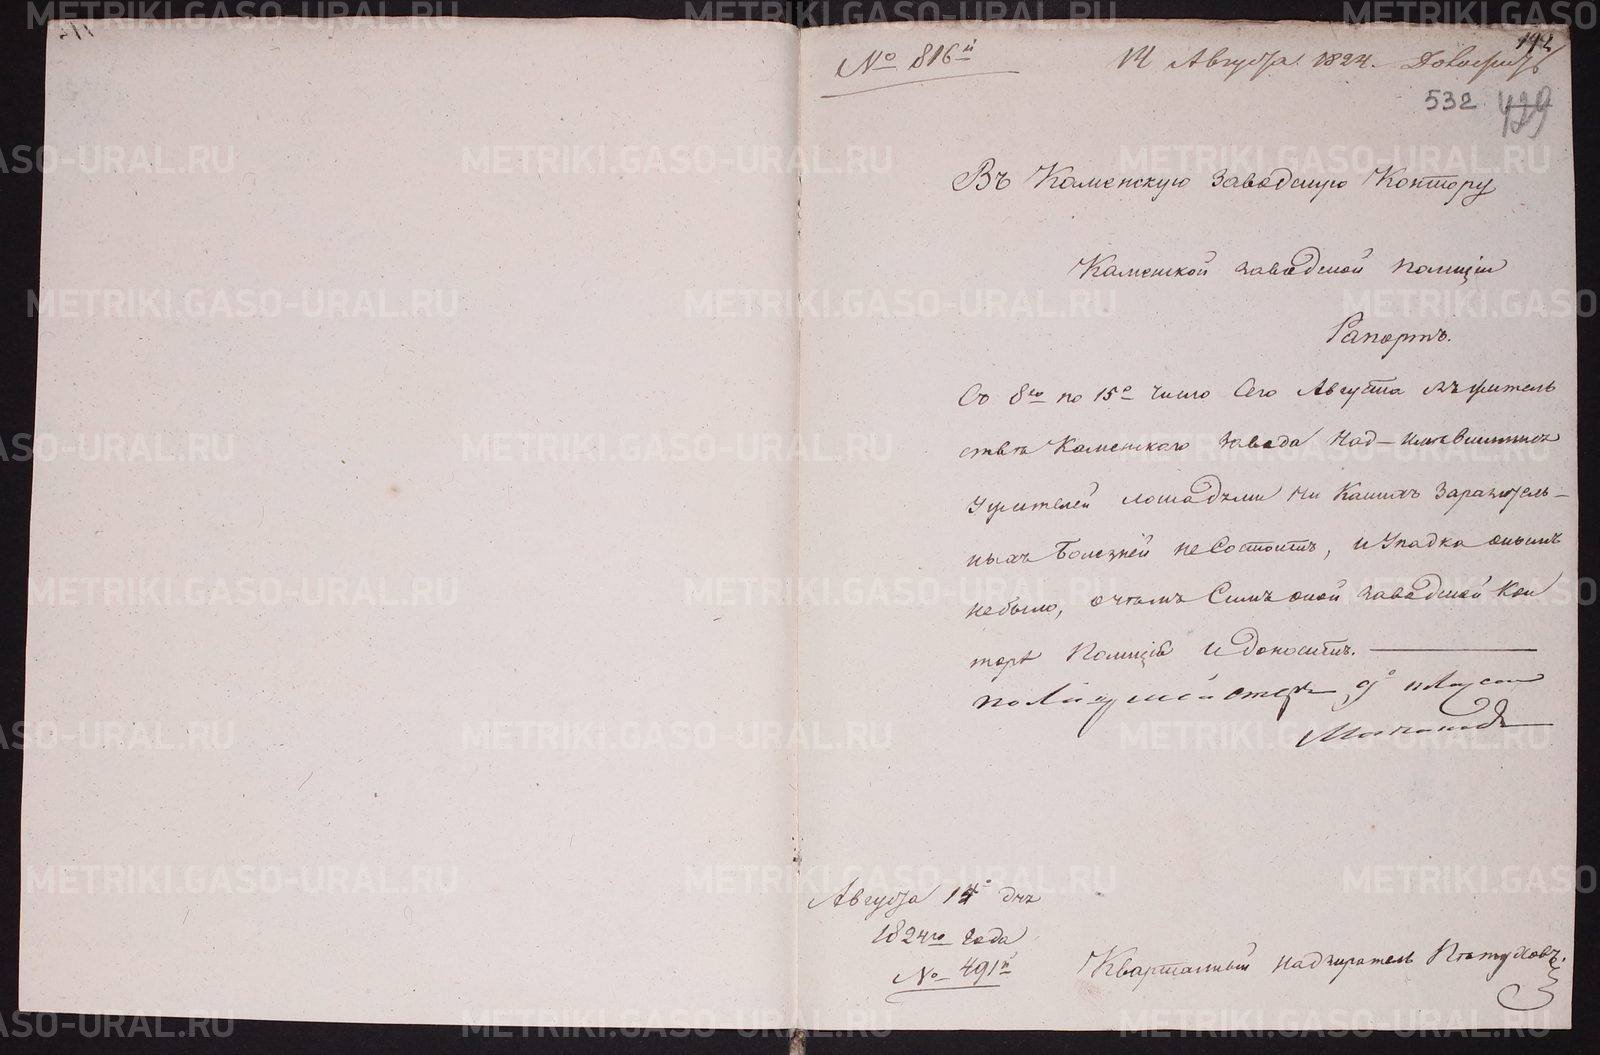 № 816й
14 Августа 1824.
142
532 429
Въ Каменскую Заводскую Контору
Каменской заводской полиціи
Рапортъ.
Съ 8го по 15е число Сего Августа въ житель
ствѣ Каменского завода над имѣвшимися
у жителей лошадьми ни какихъ заразитель-
ныхъ болезней не состоитъ, и упадка онымъ
небыло, о чемъ Симъ оной заводской Кон
торѣ Полиція и доноситъ.
полицмейстеръ
Августа 14го дня
1824го года
№ 491й
Квартальный надзиратель Пѣтуховъ.
METRIKI.GASO-URAL.RU